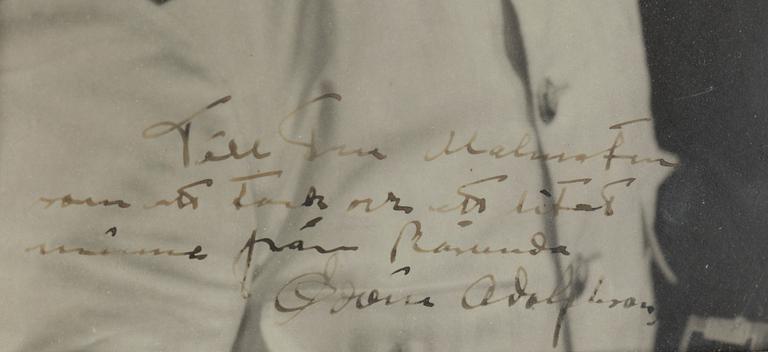 Till Fru Malmsten
som ett tack och ett litet
minne från Råsunda
Edvin Adolphson